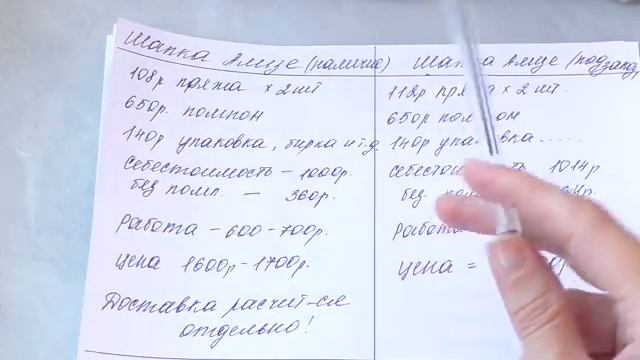 Шапка Алиде (наличие)
108р пряжа × 2 шт
650р. помпон
140р упаковка, бирка и т.д.
Себестоимость – 1000р.
без помп. – 360р.
Работа – 600-700р.
Цена 1600р – 1700р.
Доставка расчит-ся
отдельно!
Шапка Алиде (под заказ)
112р × 2 шт.
650р
140р упаковка.....
1014р
без
работа
цена =